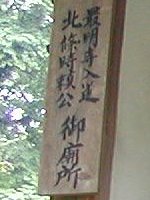 最明寺入道
北條時頼公 御廟所